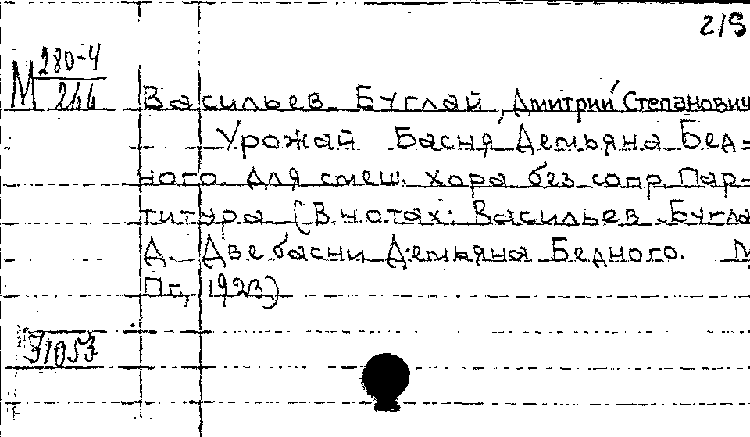 219
М 280-4
266
Васильев-Буглай, Дмитрий Степанович
Урожай Басня Демьяна Бед-
ного. Для смеш. хора без сопр. Пар-
титура (В нотах: Васильев-Бугла
Д. Две басни Демьяна Бедного. М
Пг, 1923)
31053